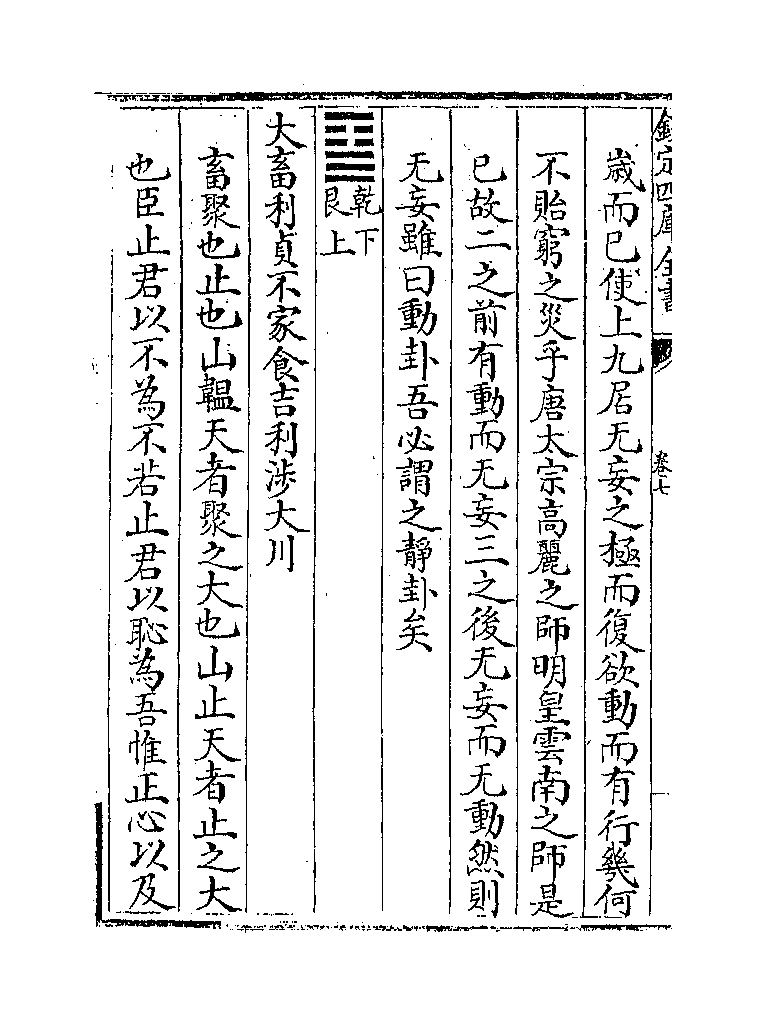 欽定四庫全書
卷七
歲而已使上九居无妄之極而復欲動而有行幾何
不貽窮之災乎唐太宗高麗之師明皇雲南之師是
已故二之前有動而无妄三之後无妄而无動然則
无妄雖曰動卦吾必謂之靜卦矣
乾下
艮上
大畜利貞不家食吉利涉大川
畜聚也止也山韞天者聚之大也山止天者止之大
也臣止君以不為不若止君以恥為吾惟正心以及